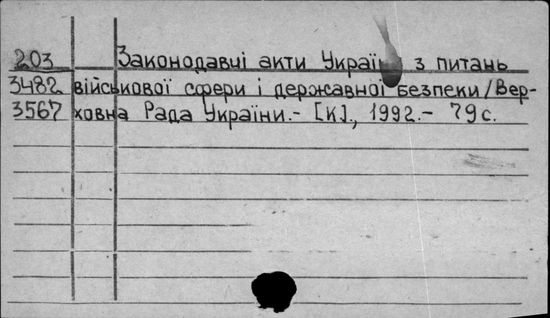 203 Законодавці акти Україн з питань
3482 військової сфери і державної безпеки/Вер-
3567 ховна Рада України.- [К]., 1992.- 79 с.